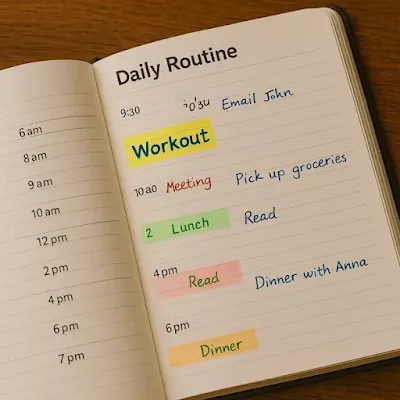 6 am
8 am
9 am
10 am
12 pm
2 pm
4 pm
6 pm
7 pm
Daily Routine
9:30 Email John
Workout
10 a0 Meeting Pick up groceries
2 Lunch Read
4 pm
Read Dinner with Anna
6 pm
Dinner